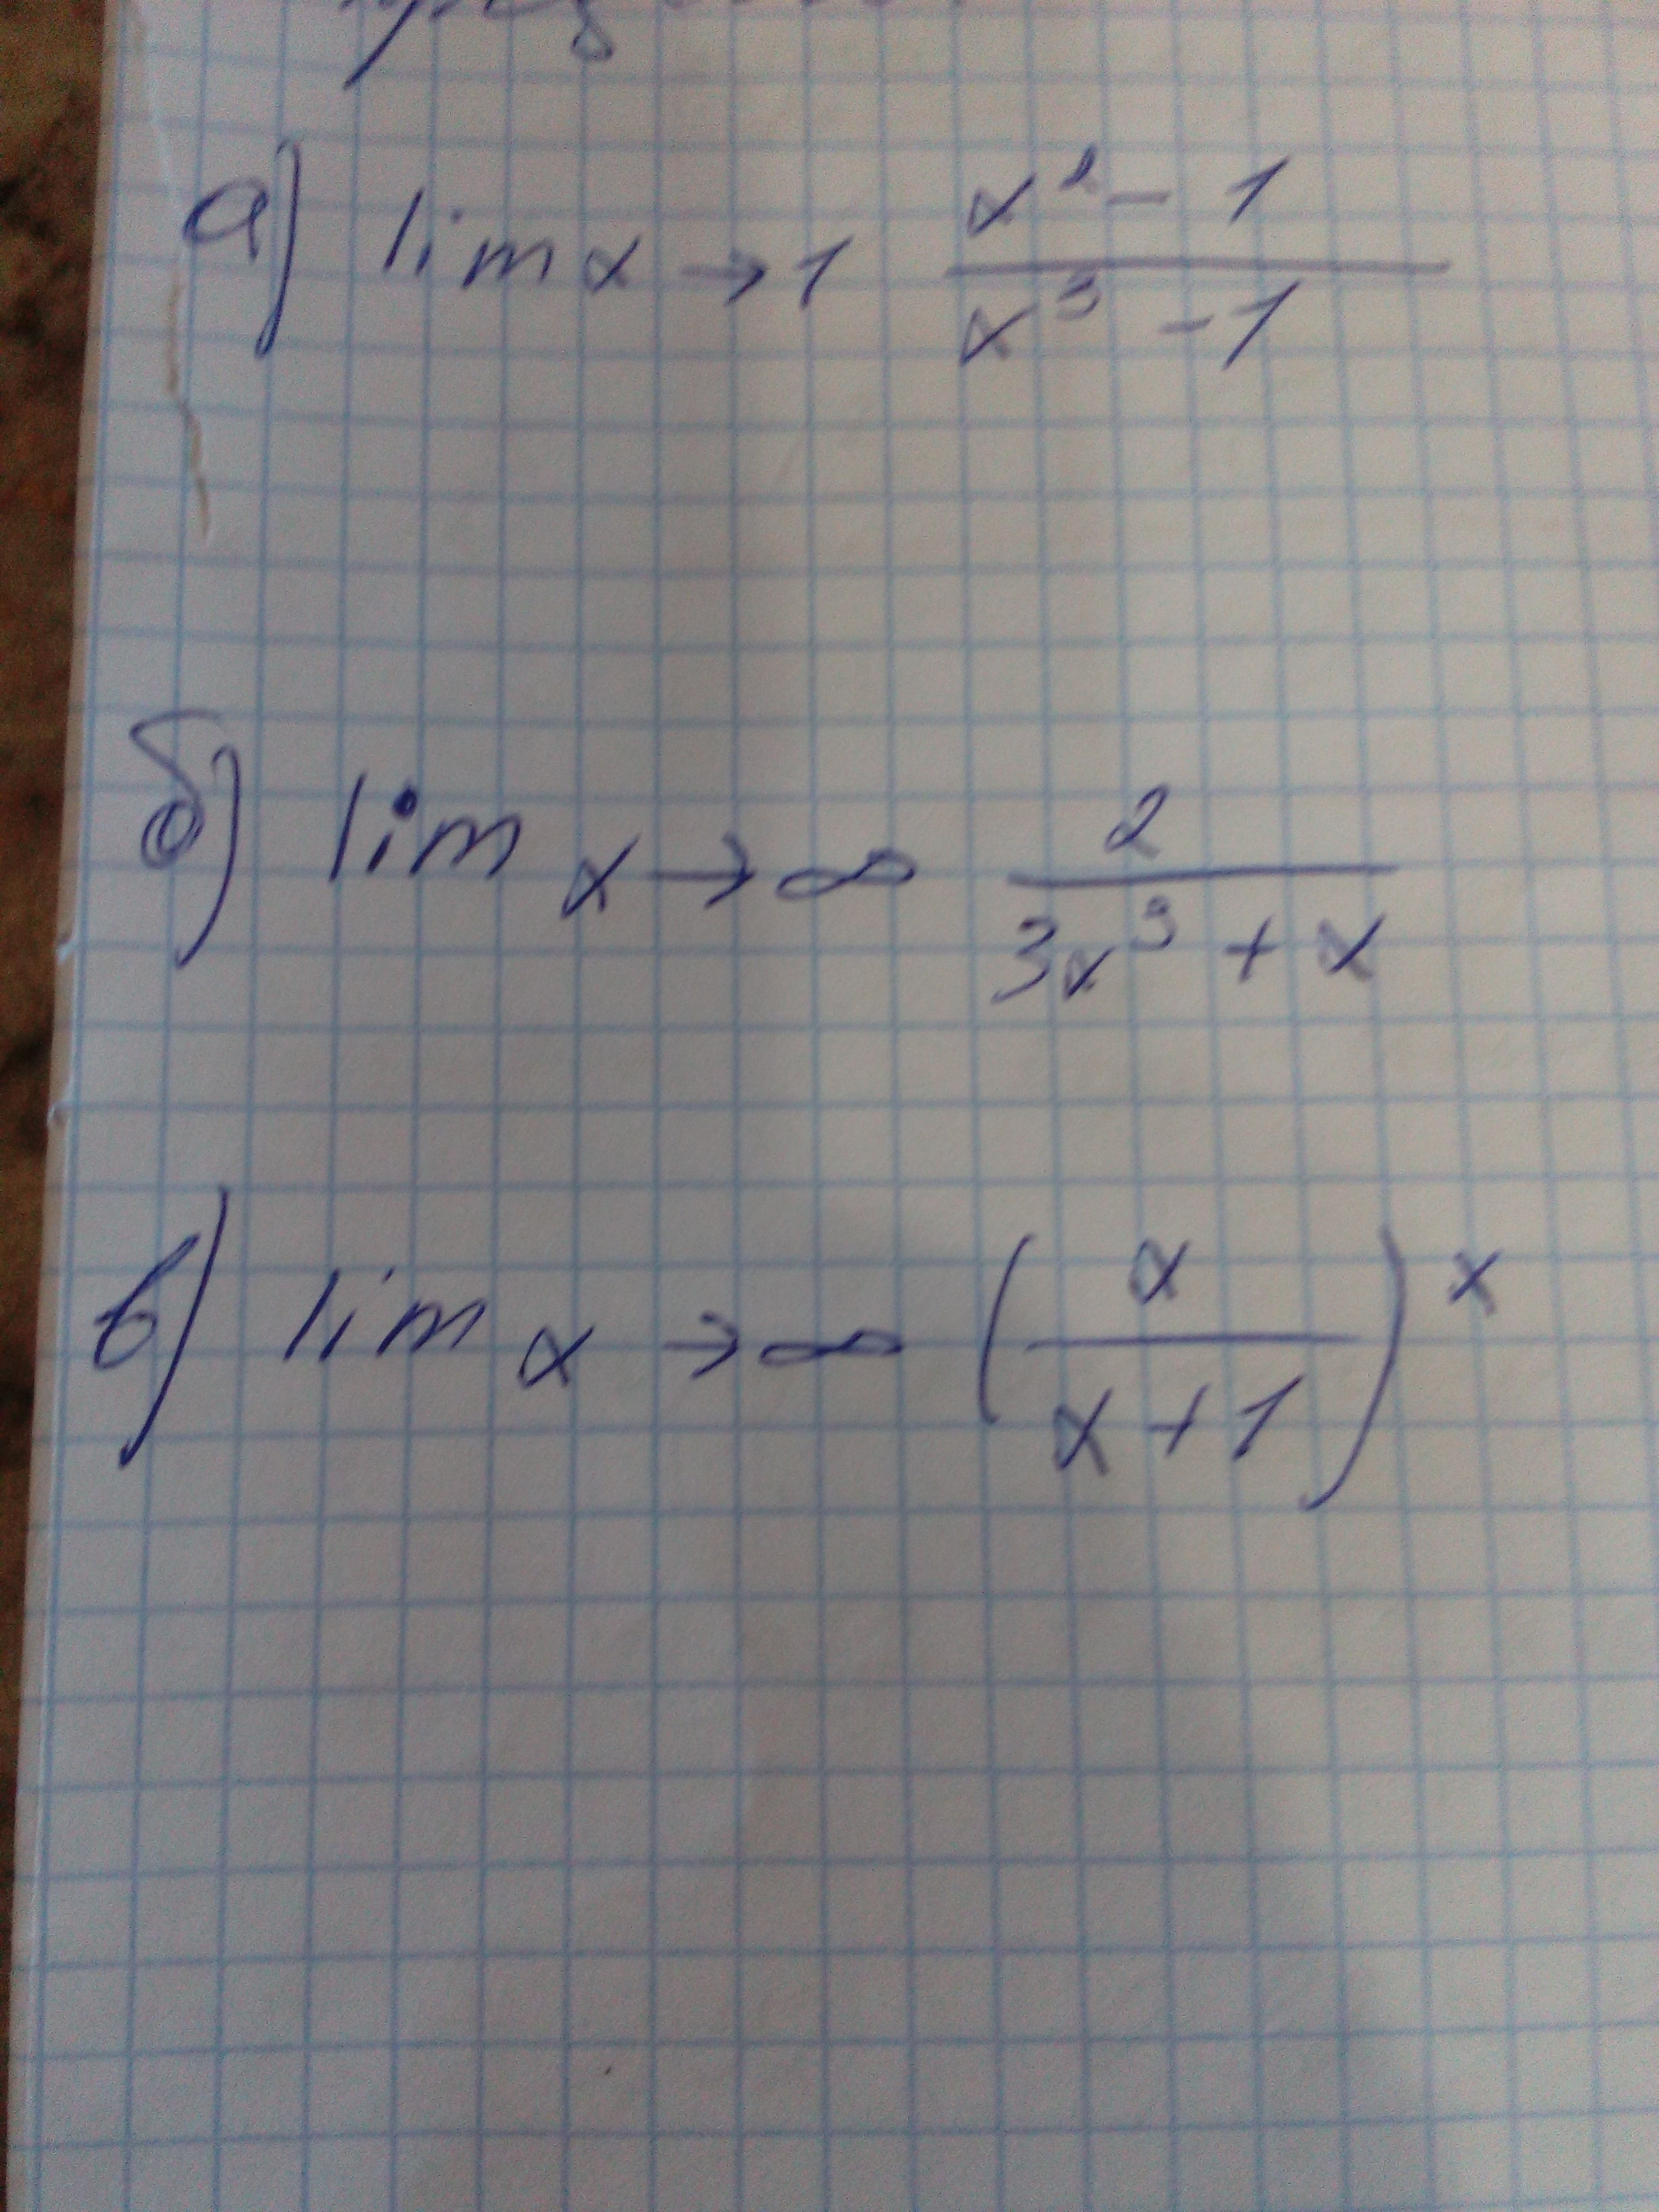 а) lim x → 1 (x² - 1)/(x³ - 1)
б) lim x → ∞ 2/(3x³ + x)
в) lim x → ∞ (x/(x + 1))ˣ